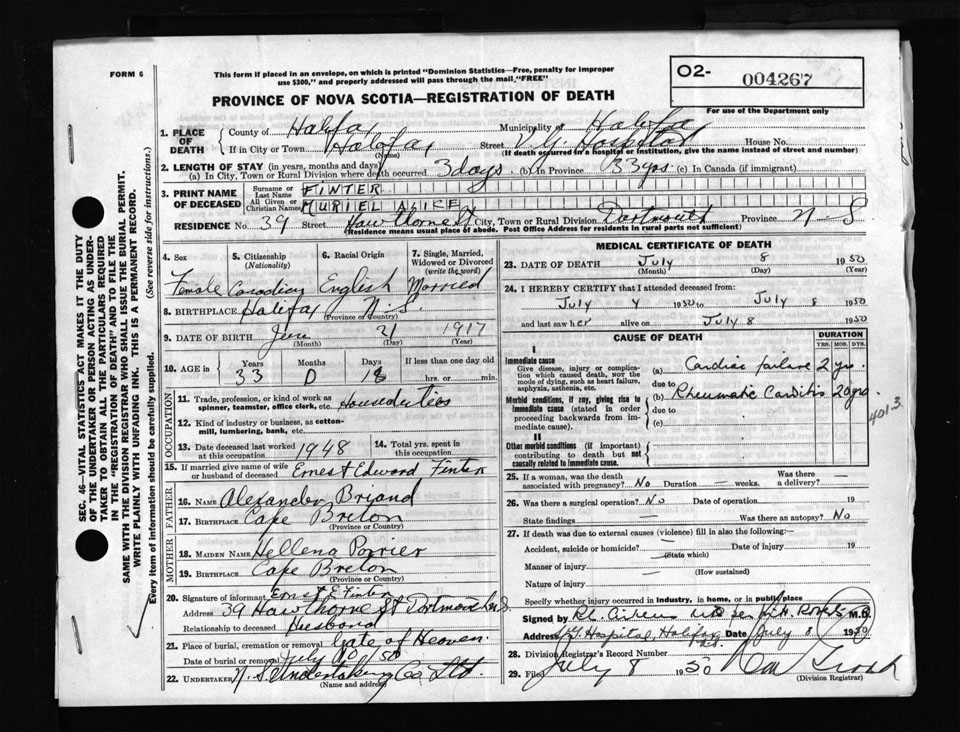 FORM 6
This form if placed in an envelope, on which is printed "Dominion Statistics—Free, penalty for improper
use $300," and properly addressed will pass through the mail, "FREE"
O2- 004267
For use of the Department only
PROVINCE OF NOVA SCOTIA—REGISTRATION OF DEATH
1. PLACE OF DEATH
County of Halifax Municipality of Halifax
If in City or Town Halifax (Name) Street V.G. Hospital House No.
(If death occurred in a hospital or institution, give the name instead of street and number)
2. LENGTH OF STAY (in years, months and days)
(a) In City, Town or Rural Division where death occurred 3 days (b) In Province 33 yrs (c) In Canada (if immigrant)
3. PRINT NAME OF DECEASED
Surname or Last Name FINTER
All Given or Christian Names MURIEL ALICE
RESIDENCE No. 39 Street Hawthorne St City, Town or Rural Division Dartmouth Province N-S
(Residence means usual place of abode. Post Office Address for residents in rural parts not sufficient)
4. Sex
Female
5. Citizenship (Nationality)
Canadian
6. Racial Origin
English
7. Single, Married, Widowed or Divorced (write the word)
Married
8. BIRTHPLACE Halifax N.S.
(Province or Country)
9. DATE OF BIRTH June 21 1917
(Month) (Day) (Year)
10. AGE in Years Months Days If less than one day old
33 0 18 hrs. or min.
OCCUPATION
11. Trade, profession, or kind of work as spinner, teamster, office clerk, etc. Houseduties
12. Kind of industry or business, as cotton-mill, lumbering, bank, etc.
13. Date deceased last worked at this occupation 1948
14. Total yrs. spent in this occupation
15. If married give name of wife or husband of deceased Ernest Edward Finter
FATHER
16. NAME Alexander Briand
17. BIRTHPLACE Cape Breton
(Province or Country)
MOTHER
18. MAIDEN NAME Hellena Porrier
19. BIRTHPLACE Cape Breton
(Province or Country)
20. Signature of informant Ernst E Finter
Address 39 Hawthorne St Dartmouth N.S.
Relationship to deceased Husband
21. Place of burial, cremation or removal Gate of Heaven.
Date of burial or removal July 10 50
22. UNDERTAKER N. S. Undertaking Co. Ltd.
(Name and address)
MEDICAL CERTIFICATE OF DEATH
23. DATE OF DEATH July 8 1950
(Month) (Day) (Year)
24. I HEREBY CERTIFY that I attended deceased from:
July 4 1950 to July 8 1950
and last saw her alive on July 8 1950
CAUSE OF DEATH
DURATION
YRS. MOS. DYS.
I
Immediate cause
Give disease, injury or complication which caused death, NOT the mode of dying, such as heart failure, asphyxia, asthenia, etc.
(a) Cardiac failure 2 yrs.
due to
Morbid conditions, if any, giving rise to immediate cause (stated in order proceeding backwards from immediate cause).
(b) Rheumatic Carditis 20 yrs.
due to
(c)
401.3.
II
Other morbid conditions (if important) contributing to death but not causally related to immediate cause.
25. If a woman, was the death associated with pregnancy? No Duration — weeks. Was there a delivery? —
26. Was there a surgical operation? No Date of operation 19
State findings — Was there an autopsy? No
27. If death was due to external causes (violence) fill in also the following:—
Accident, suicide or homicide? — Date of injury 19
(State which)
Manner of injury —
(How sustained)
Nature of injury —
Specify whether injury occurred in industry, in home, or in public place
Signed by M.D.
Address V.G. Hospital, Halifax Date July 8 1950
28. Division Registrar's Record Number
29. Filed July 8 1950
(Division Registrar)
SEC. 46—VITAL STATISTICS ACT MAKES IT THE DUTY
OF THE UNDERTAKER OR PERSON ACTING AS UNDER-
TAKER TO OBTAIN ALL THE PARTICULARS REQUIRED
IN THE "REGISTRATION OF DEATH" AND TO FILE THE
SAME WITH THE DIVISION REGISTRAR WHO SHALL ISSUE THE BURIAL PERMIT.
WRITE PLAINLY WITH UNFADING INK. THIS IS A PERMANENT RECORD.
Every item of information should be carefully supplied. (See reverse side for instructions.)